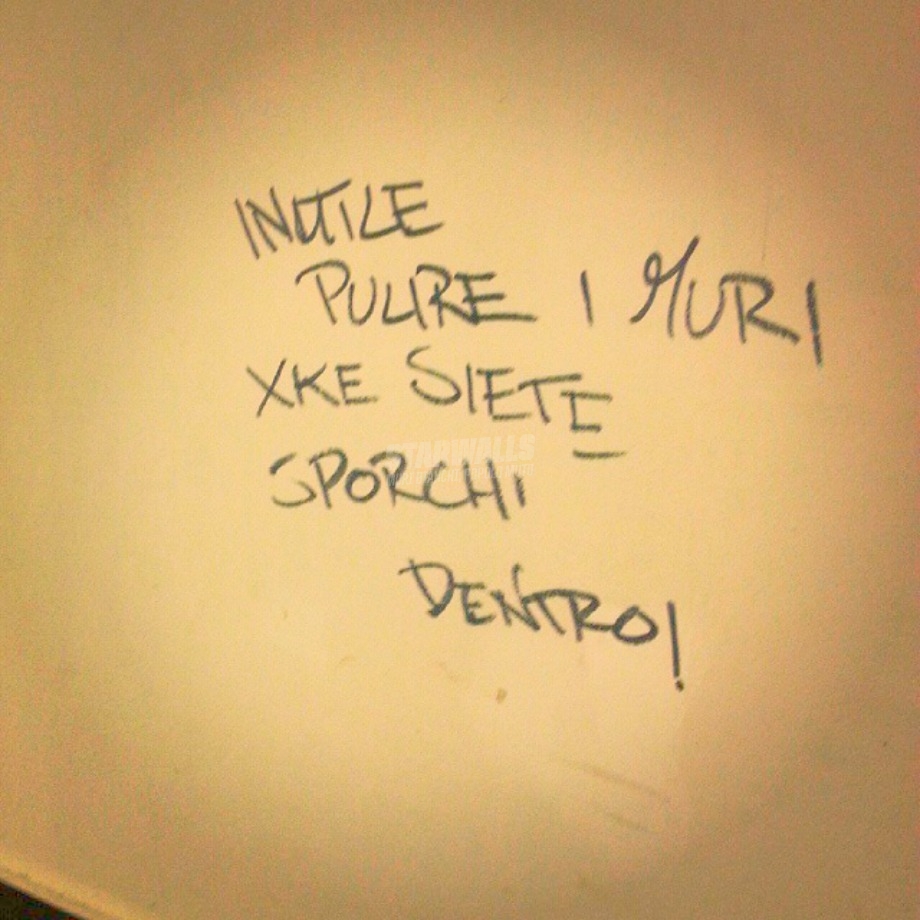 INUTILE
PULIRE I MURI
XKE SIETE
SPORCHI
DENTRO!
STARWALLS